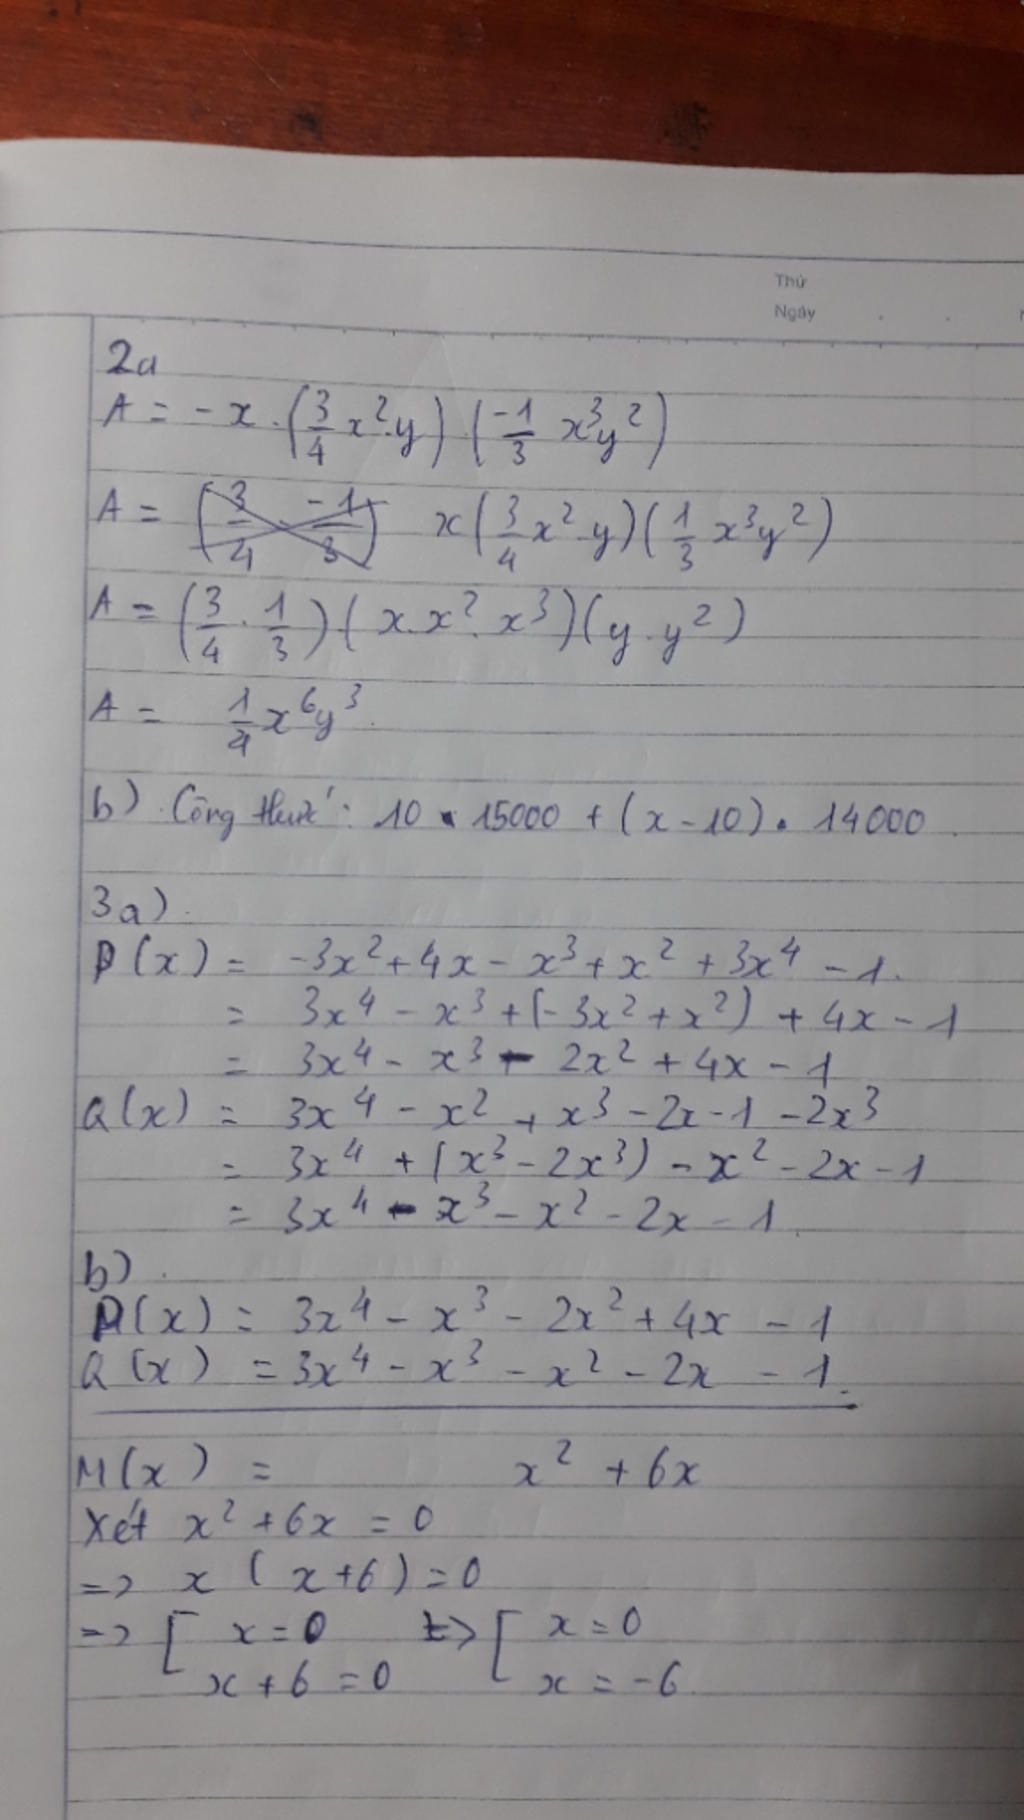 Thứ
Ngày
2a
A = -x . (3/4 x² . y) . (-1/3 x³y²)
A = x (3/4 x² . y) (1/3 x³y²)
A = (3/4 . 1/3) (x . x² . x³) (y . y²)
A = 1/4 x⁶y³
b) Công thức : 10 . 15000 + (x - 10) . 14000
3a)
P(x) = -3x² + 4x - x³ + x² + 3x⁴ - 1
= 3x⁴ - x³ + (-3x² + x²) + 4x - 1
= 3x⁴ - x³ - 2x² + 4x - 1
Q(x) = 3x⁴ - x² + x³ - 2x - 1 - 2x³
= 3x⁴ + (x³ - 2x³) - x² - 2x - 1
= 3x⁴ - x³ - x² - 2x - 1
b)
P(x) = 3x⁴ - x³ - 2x² + 4x - 1
Q(x) = 3x⁴ - x³ - x² - 2x - 1
M(x) = x² + 6x
Xét x² + 6x = 0
=> x (x + 6) = 0
=> [ x = 0 => [ x = 0
x + 6 = 0 x = -6